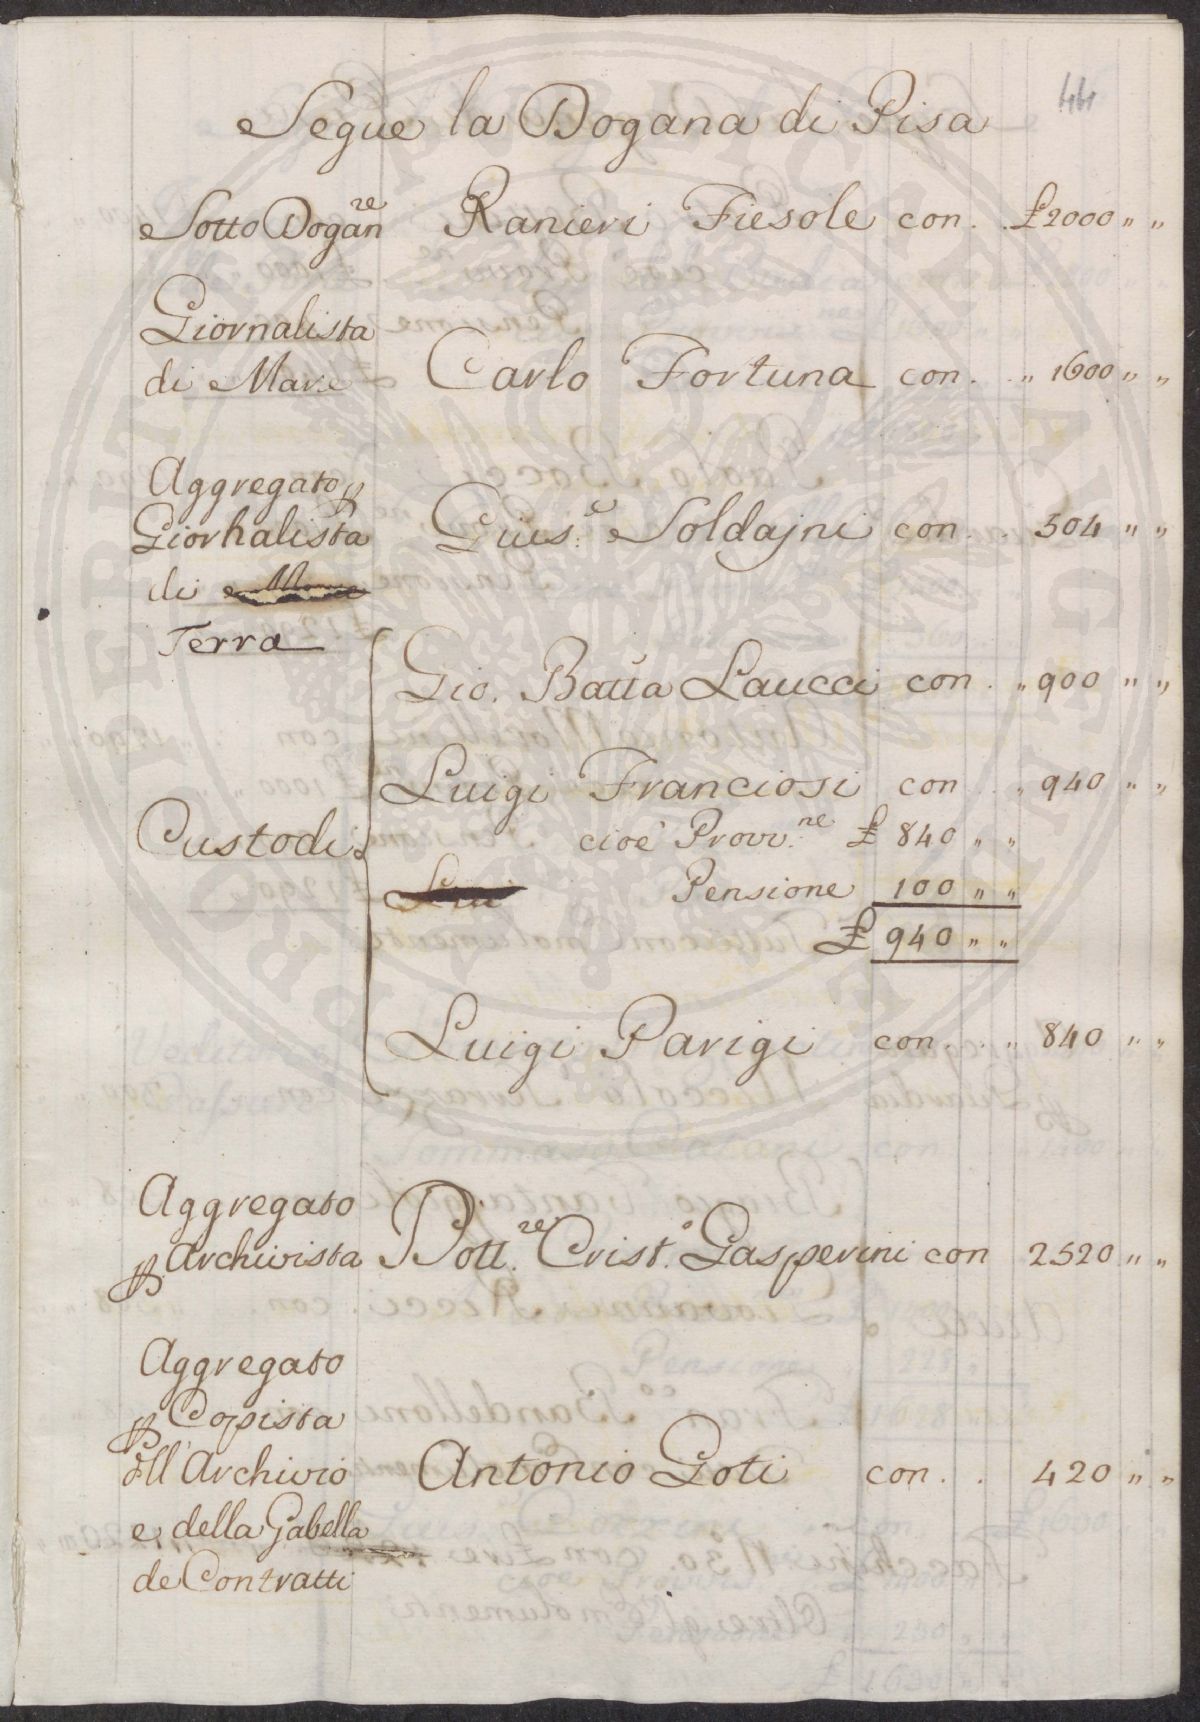 44
Segue la Dogana di Pisa
Sotto Dogan.re Ranieri Fiesole con . . £ 2000 " "
Giornalista
di Mare Carlo Fortuna con . . " 1600 " "
Aggregato p
Giornalista Gius.e Soldajni con . . 504 " "
di
Terra
Gio. Batta Laucci con . " 900 " "
Luigi Franciosi con . . " 940 " "
Custodi cioè Provv.ne £ 840 " "
Pensione 100 " "
£ 940 " "
Luigi Parigi con . . " 840 " "
Aggregato
p Archivista Dott.re Crist.o Gasperini con 2520 " "
Aggregato
p Copista
dll' Archivio Antonio Goti con . . 420 " "
e della Gabella
de Contratti